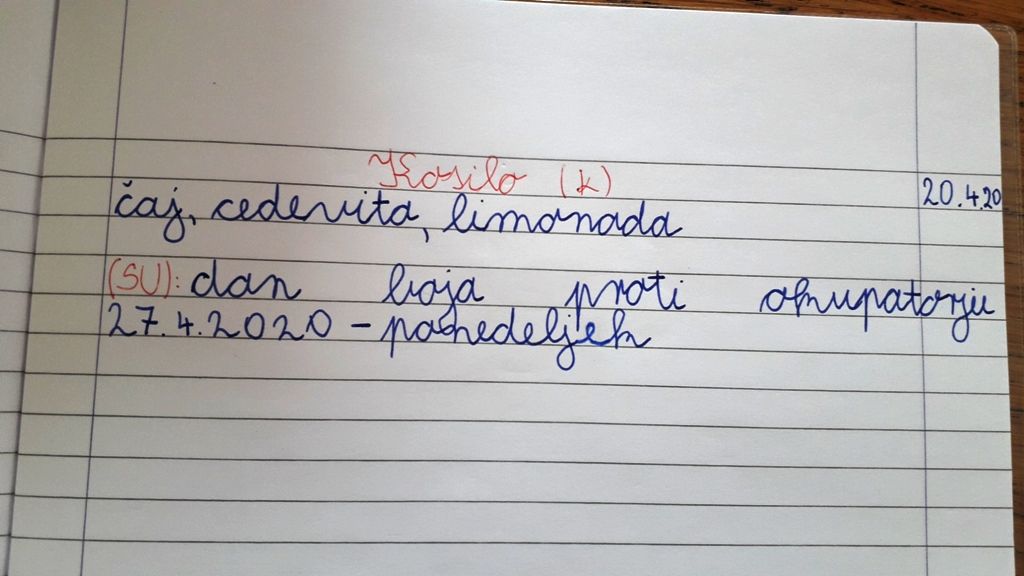 Kosilo (k)
20.4.20
čaj, cedevita, limonada
(SU): dan boja proti okupatorju
27.4.2020 - ponedeljek